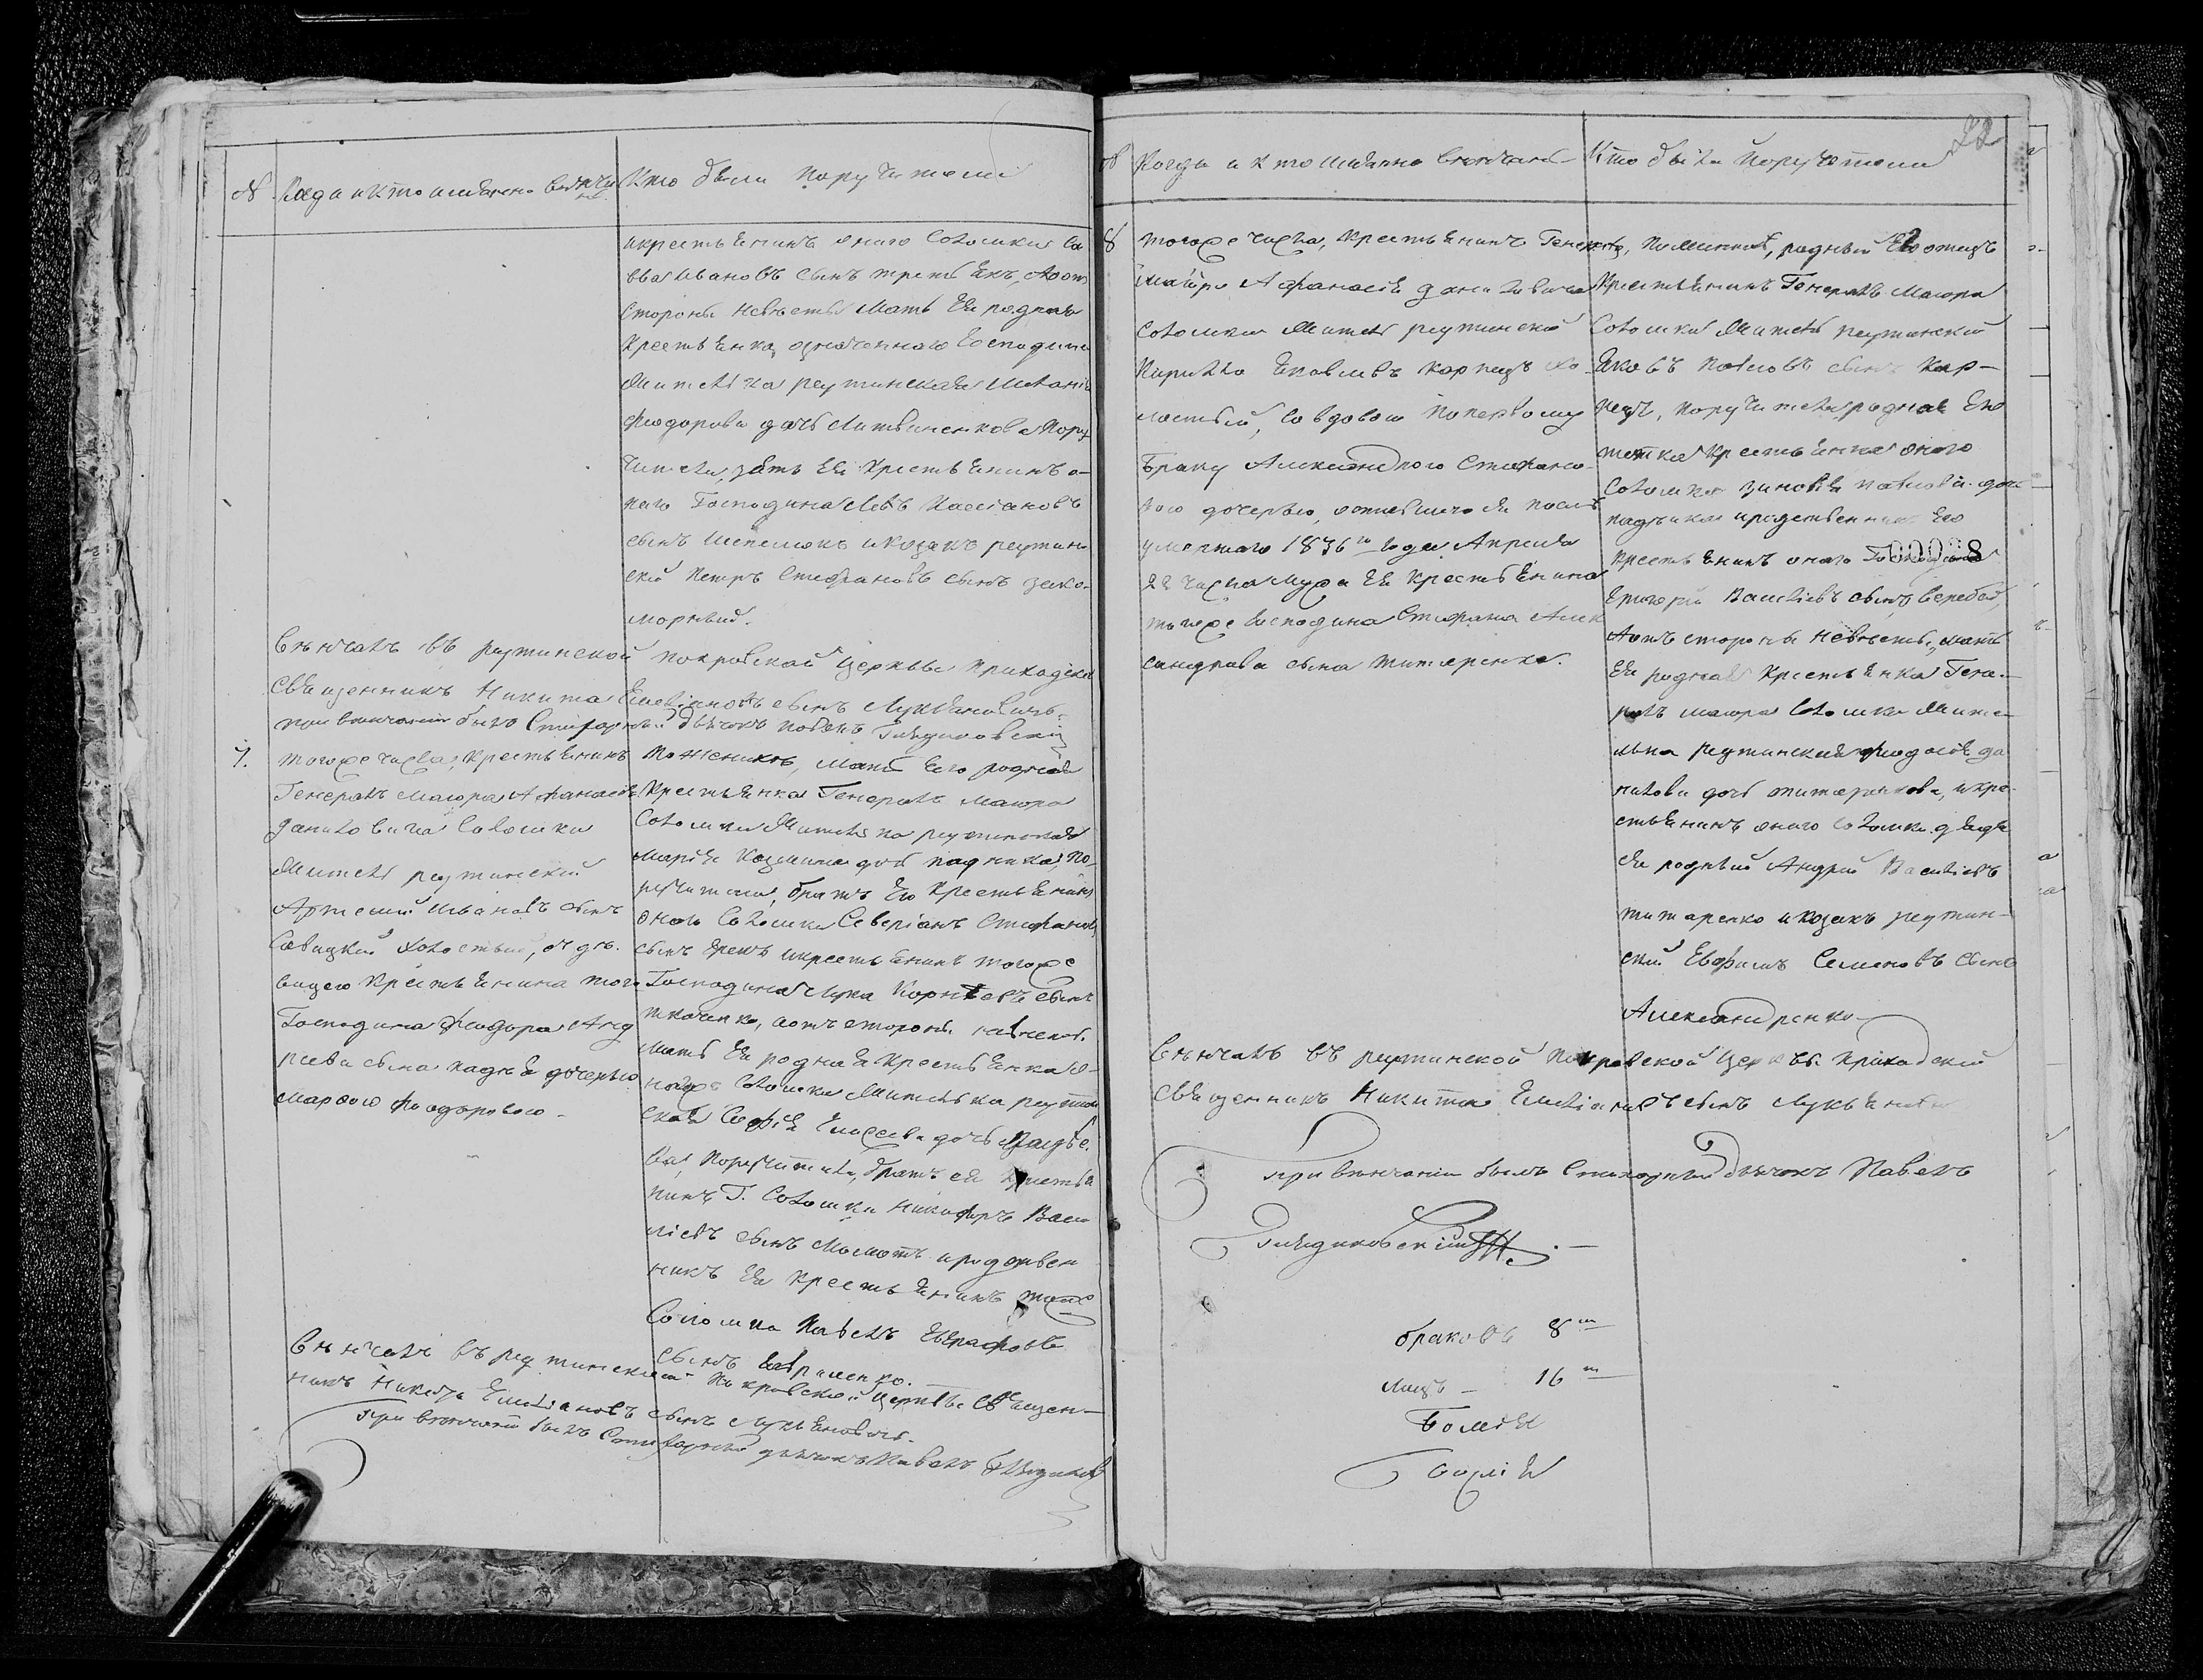 № Когда и кто имянно венчан
Кто были поручители
и крестьянинъ оного Соломки Са
вва Ивановъ сынъ третьякъ, А отъ
стороны невесты Мать Ея родная
Крестьянка означенного Господина
Жителька реутинская Мелания
Феодорова дочь Литвиненкова Пору
чители, зять Ея Крестьянинъ о-
ного Господина Левъ Кассіановъ
сынъ Шепелюкъ и козакъ реутин
ский Петръ Стефановъ сынъ зако-
морный.
Вѣнчалъ въ реутинской покровской церкве приходскій
Священникъ Никита Емельяновъ сынъ Лукьяновичъ.
при венчании былъ Стихарный дьячокъ Павелъ Гвядиковский
7. Того же числа, Крестьянинъ
Генералъ маиора Афанасія
Даниловича Соломки
Житель реутинский
Артемий Ивановъ сынъ
Савицкий холостый, съ дѣ-
вицею Крестьянина того
Господина Феодора Анд
реева сына падчея дочерью
Марфою Феодоровою.
По Женихѣ, мать Его родная
Крестьянка Генералъ маиора
Соломки Жителька реутинская
Марія Козмина дочь падчика, По-
ручители, братъ Его Крестьянинъ
Оного Соломки Северіанъ Стефановъ
сынъ грекъ и крестьянинъ того же
Господина Лука Корнѣевъ сынъ
ткаченко, а отъ стороны невесты
Мать Ея родная Крестьянка о-
ного Соломки Жителька реутин
ская Софія Елисеева дочь
Поручители, братъ ея Крестья
нинъ Г. Соломки Никифоръ Васи
ліевъ сынъ Мамотъ и родствен
никъ Ея Крестьянинъ того
Соломки Павелъ Евграфовъ
сынъ Гавриленко.
Вѣнчалъ въ реутинской Покровской церкве Священ-
никъ Никита Емельяновъ сынъ Лукьяновичъ.
При венчании былъ Стихарный дьячокъ Павелъ Гвядиковский
22
№ Когда и кто имянно венчанъ
Кто были поручители
8 Того же числа, Крестьянинъ Генералъ
маиора Афанасія Даниловича
Соломки Житель реутинский
Кирилло Яковлевъ Карпецъ хо-
лостый, со вдовою по первому
браку Александрою Стефано-
вою дочерью, оставшеюся после
умершаго 1836го года, Апреля
22 числа мужа Ея Крестьянина
того же Господина Стефана Алек
сандрова сына Титаренка.
По Женихѣ, родный Его отецъ
Крестьянинъ Генералъ Маиора
Соломки Житель реутинский
Яковъ Павловъ сынъ Кар-
пецъ, поручители, родная Его
тетка Крестьянка оного
Соломки Зиновія Павлова дочь
падчика и родственникъ Его
Крестьянинъ оного Господина
Григорій Василіевъ сынъ Веребей,
А отъ стороны невесты, мать
Ея родная Крестьянка Гене-
ралъ маиора Соломки Жите-
лька реутинская Феодосія Да
нилова дочь Титаренкова, и кре-
стьянинъ оного Соломки дядя
Ея родный Андрей Василіевъ
Титаренко и козакъ реутин-
ский Евфимъ Семеновъ сынъ
Александренко
00028
Вѣнчалъ въ реутинской Покровской Церкве приходский
Священникъ Никита Емельяновъ сынъ Лукьянович
При венчании былъ Стихарный дьячокъ Павелъ
Гвядиковский
браковъ 8м
Лицъ — 16 т